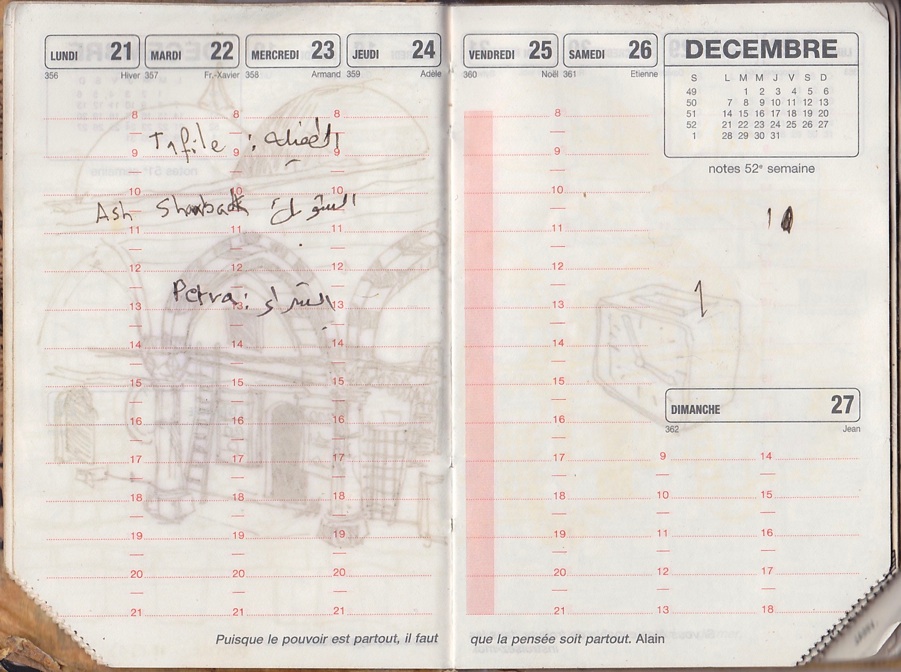 LUNDI 21
356 Hiver
MARDI 22
357 Fr.-Xavier
MERCREDI 23
358 Armand
JEUDI 24
359 Adèle
8 8 8
Tafile :
9 9 9
10 10 10
Ash
11 11 11
12 12 12
Petra: البتراء
13 13 13
14 14 14
15 15 15
16 16 16
17 17 17
18 18 18
19 19 19
20 20 20
21 21 21
Puisque le pouvoir est partout, il faut
VENDREDI 25
360 Noël
SAMEDI 26
361 Etienne
8
9
10
11
12
13
14
15
16
17
18
19
20
21
DECEMBRE
S L M M J V S D
49 1 2 3 4 5 6
50 7 8 9 10 11 12 13
51 14 15 16 17 18 19 20
52 21 22 23 24 25 26 27
1 28 29 30 31
notes 52e semaine
DIMANCHE 27
362 Jean
9 14
10 15
11 16
12 17
13 18
que la pensée soit partout. Alain